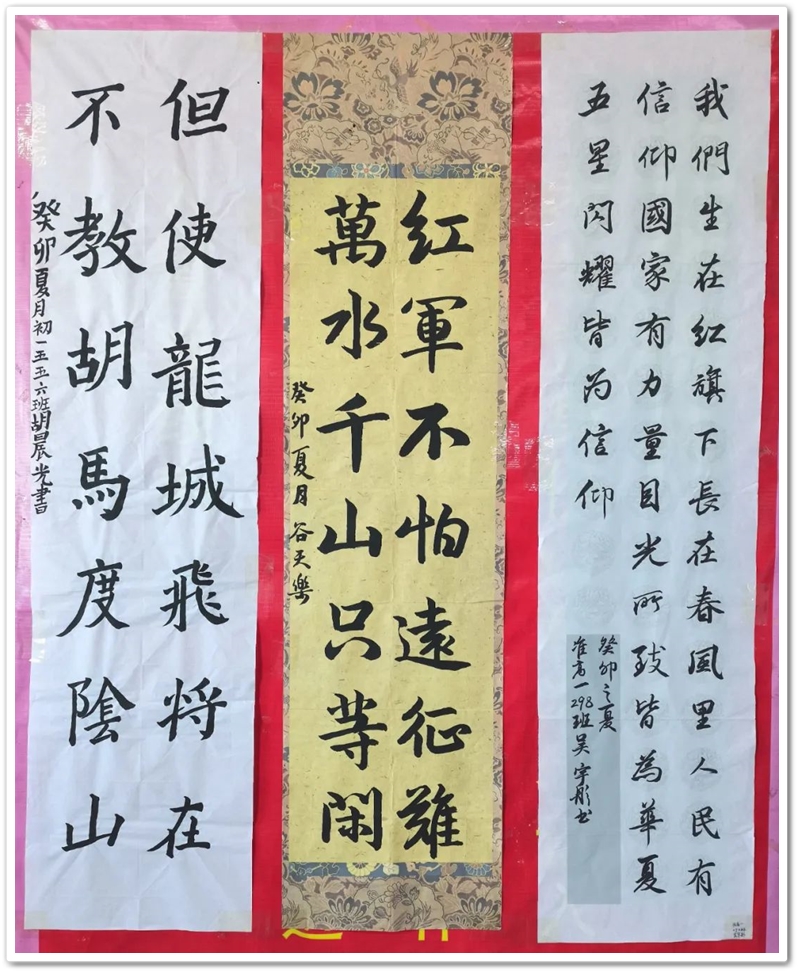 我們生在红旗下長在春風里人民有
信仰國家有力量目光所致皆為華夏
五星閃耀皆为信仰
癸卯之夏
准高一298班吴宇彤书
红軍不怕遠征難
萬水千山只等閑
癸卯夏月谷天樂
但使龍城飛将在
不教胡馬度陰山
癸卯夏月初一五五六班胡晨光書